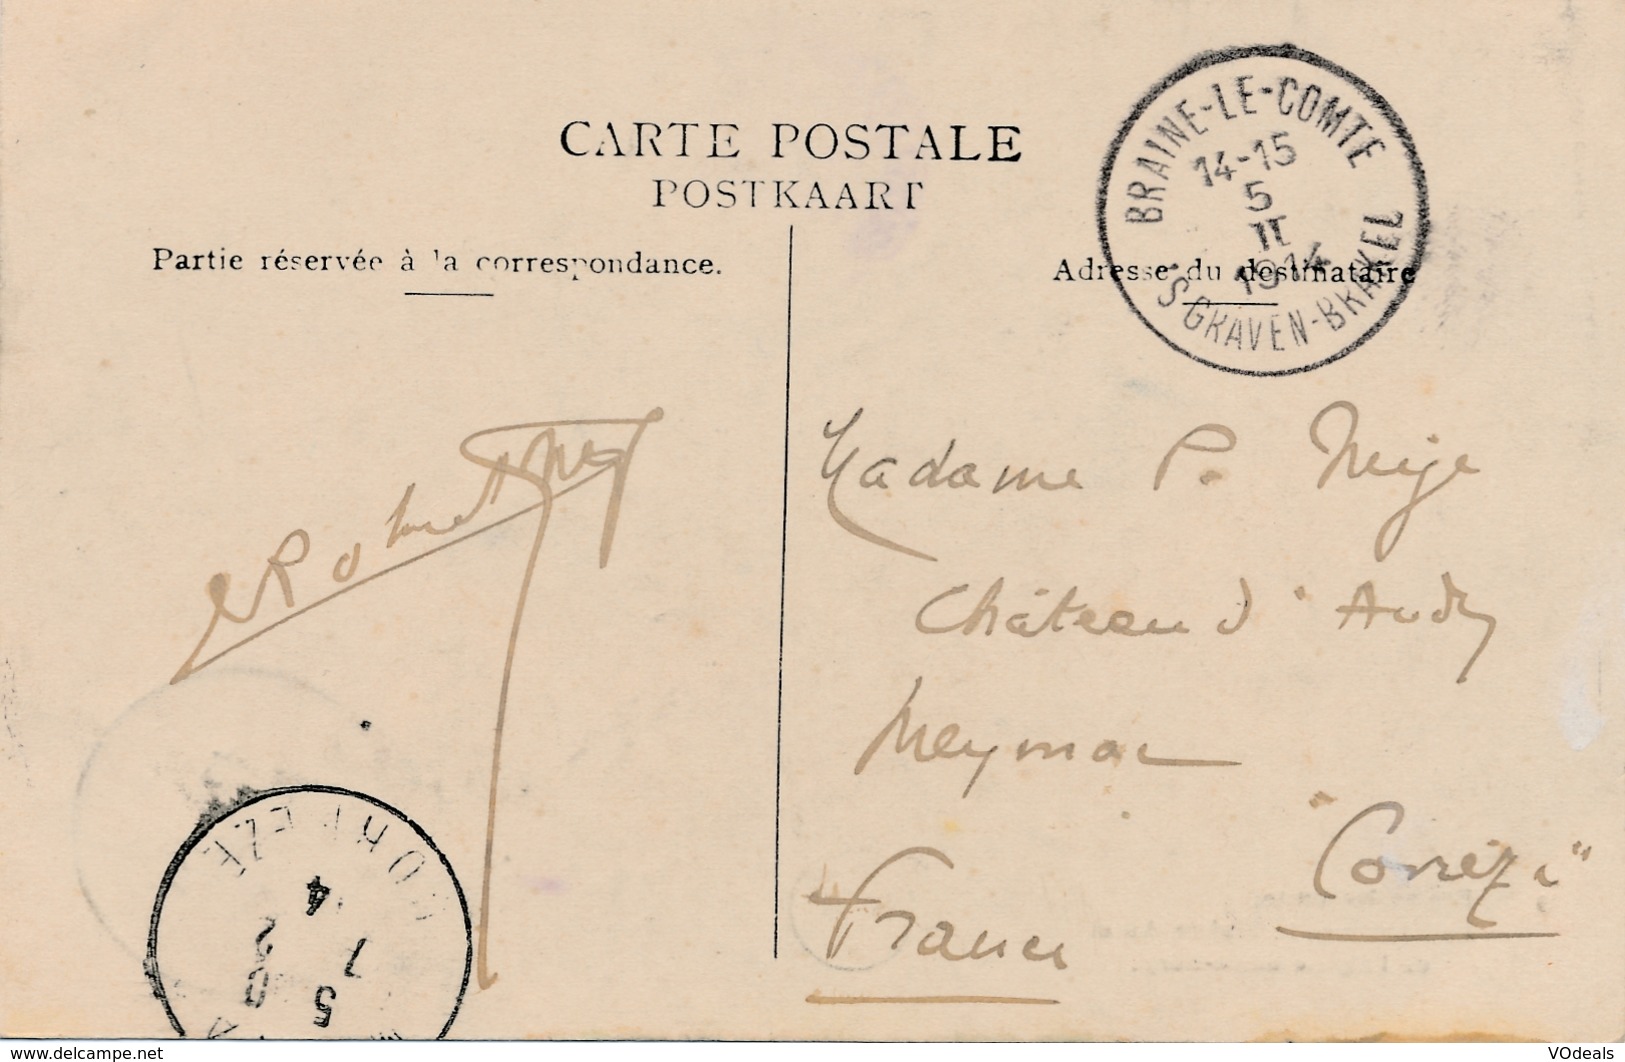 CARTE POSTALE
POSTKAART
Partie réservée à la correspondance.
Adresse du destinataire
BRAINE-LE-COMTE
14-15
5
II
1914
'S GRAVEN-BRAKEL
Madame P. Neige
Château d'
Meymac
"Corrèze"
France
CORREZE
www.delcampe.net
VOdeals